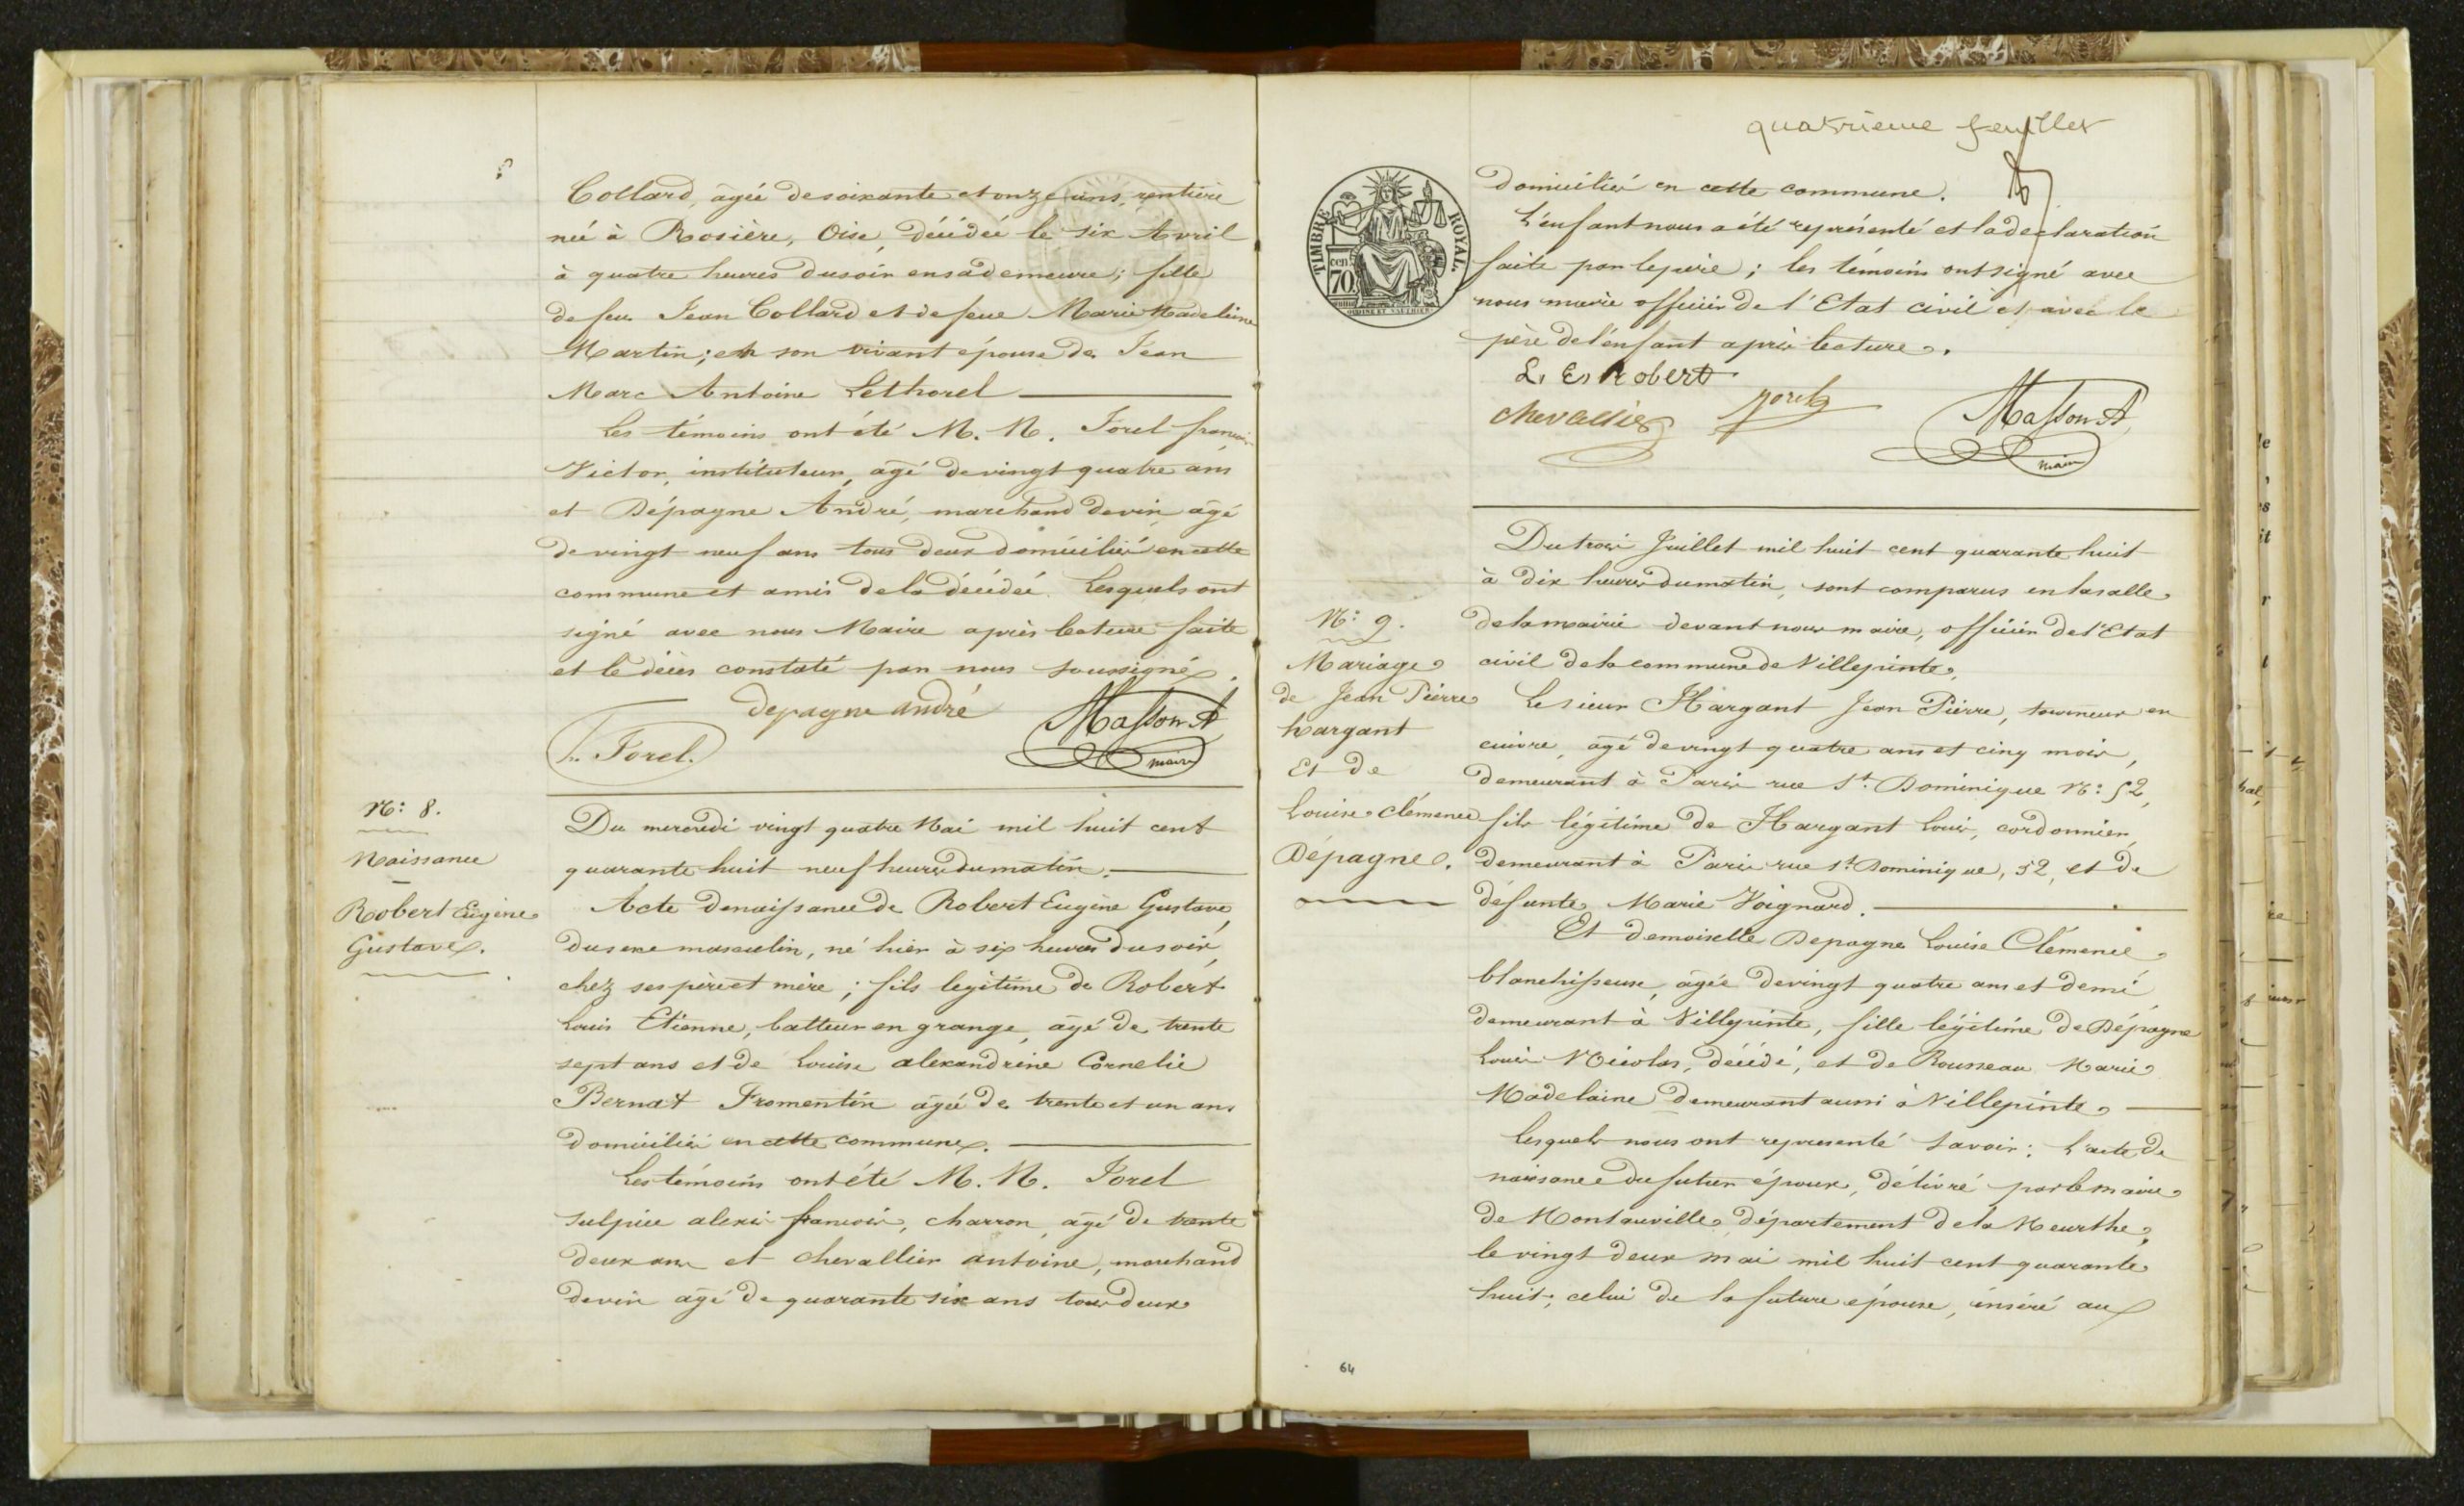 Collard, agée de soixante et onze ans, rentière
née à Rosière, Oise, décédée le six Avril
à quatre heures du soir en sa demeure; fille
de feu Jean Collard et de feue Marie Madeleine
Martin; en son vivant épouse de Jean
Marc Antoine Lethorel
Les témoins ont été M. M. Forel françois
Victor, instituteur, agé de vingt quatre ans
et Dépagne André, marchand de vin, agé
de vingt neuf ans tous deux domicilié en cette
commune et amis de la décédée. Lesquels ont
signé avec nous Maire après lecture faite
et le décès constaté par nous soussigné.
depagne andré
Masson A
maire
Forel.
N°: 8.
Naissance
Robert Eugène
Gustave.
Du mercredi vingt quatre Mai mil huit cent
quarante huit neuf heures du matin.
Acte de naissance de Robert Eugène Gustave,
du sexe masculin, né hier à six heures du soir,
chez ses père et mère; fils legitime de Robert
Louis Etienne, batteur en grange, agé de trente
sept ans et de Louise alexandrine Cornelie
Bernat Fromentin agée de trente et un ans
domicilié en cette commune.
Les témoins ont été M. M. Forel
Sulpice alexis francois, charron, agé de trente
deux ans et chevallier antoine, marchand
de vin agé de quarante six ans tous deux
quatrieme feuillet
TIMBRE ROYAL.
cen
70
domicilié en cette commune.
L'enfant nous a été représenté et la declaration
faite par le père; les témoins ont signé avec
nous maire officier de l'Etat civil et avec le
père de l'enfant après lecture.
L. E. Robert
chevallier
forel
Masson A
maire
N°: 9.
Mariage
de Jean Pierre
hargant
Et de
Louise Clémence
Dépagne.
Du trois Juillet mil huit cent quarante huit
à dix heures du matin, sont comparus en la salle
de la mairie devant nous maire, officier de l'Etat
civil de la commune de Villepinte,
Le sieur Hargant Jean Pierre, tourneur en
cuivre, agé de vingt quatre ans et cinq mois,
demeurant à Paris rue St. Dominique N°: 52,
fils légitime de Hargant Louis, cordonnier,
demeurant à Paris rue St. Dominique, 52, et de
défunte Marie Voignard.
Et demoiselle Depagne Louise Clémence
blanchisseuse, agée de vingt quatre ans et demi
demeurant à Villepinte, fille légitime de Dépagne
Louis Nicolas, décédé, et de Rousseau Marie
Madelaine demeurant aussi à Villepinte.
Lesquels nous ont representé savoir: l'acte de
naissance du futur époux, délivré par le maire
de Montauville, département de la Meurthe,
le vingt deux mai mil huit cent quarante
huit; celui de la future épouse, inséré aux
64